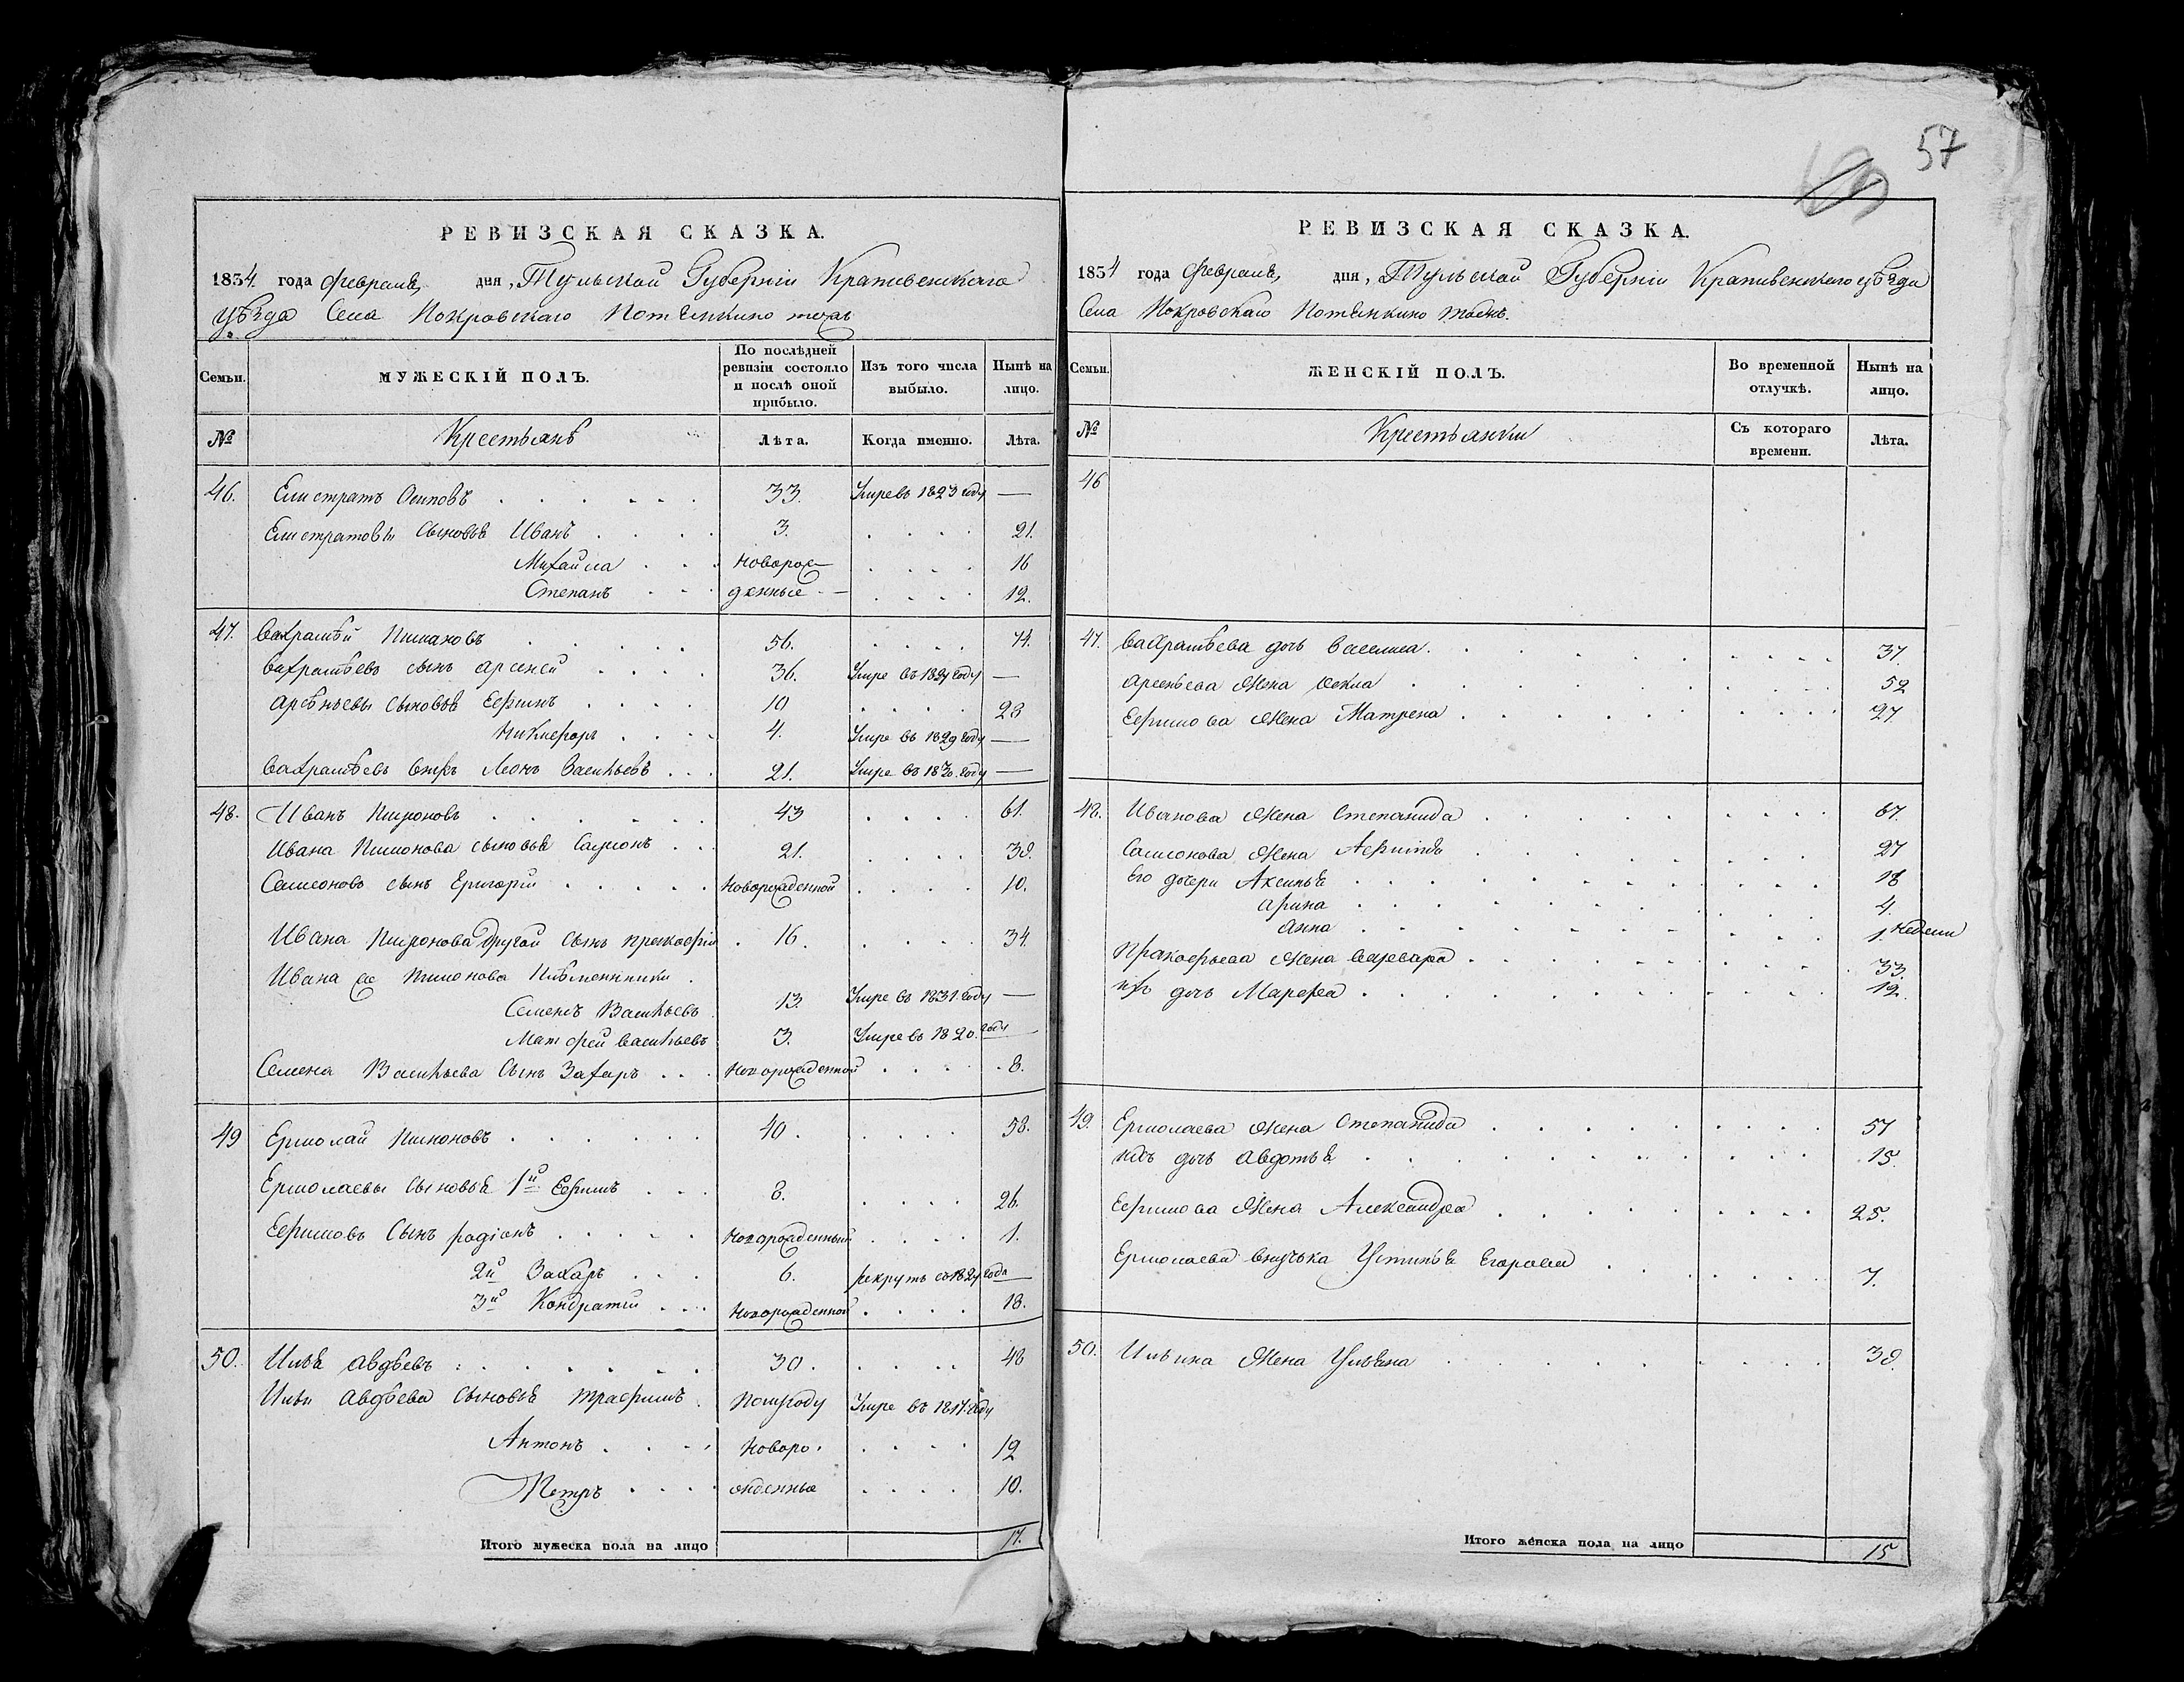 57
РЕВИЗСКАЯ СКАЗКА.
1834. года февраля дня, Тульской Губерніи Крапивенскаго
уѣзда Села Покровскаго Потѣмкино тожъ
Семьи. МУЖЕСКІЙ ПОЛЪ. По послѣдней ревизіи состояло и послѣ оной прибыло. Изъ того числа выбыло. Нынѣ на лицо.
№ Крестьянѣ Лѣта. Когда именно. Лѣта.
46. Елистратъ Осиповъ 33. Умре въ 1823 году —
Елистратовы Сыновьѣ Иванъ 3. 21.
Михайла новорож 16
Степанъ денные 12.
47. Вахрамѣй Пимановъ 56. 74.
Вахрамѣевъ сынъ Арсеней 36. Умре въ 1824 году —
Арсѣньевы Сыновьѣ Ефимъ 10 28
Никифоръ 4. Умре въ 1829 году —
Вахрамѣевъ внукъ Леонъ Васильевъ 21. Умре въ 1830. году —
48. Иванъ Пимоновъ 43 61.
Ивана Пимонова сыновьѣ Самсонъ 21. 39.
Самсоновъ сынъ Григорій новорожденной 10.
Ивана Пимонова другой Сынъ Прокофій 16. 34.
Ивана Пимонова Племенники
Семенъ Васильевъ 13. Умре въ 1831. году —
Матфей Васильевъ 3. Умре въ 1820. году —
Семена Васильева Сынъ Захаръ новорожденной 8.
49 Ермолай Пимоновъ 40. 58.
Ермолаевы Сыновьѣ 1й Ефимъ 8. 26.
Ефимовъ Сынъ Родіонъ новорожденный 1.
2й Захаръ 6. рекрутъ съ 1824 года —
3й Кондратій новорожденной 18.
50. Илья Авдѣевъ 30. 48
Ильи Авдѣева Сыновьѣ Трафимъ полугоду Умре въ 1817. году
Антонъ новоро 19
Петръ жденные 10.
Итого мужеска пола на лицо 17.
РЕВИЗСКАЯ СКАЗКА.
1834 года февраля дня, Тульской Губерніи Крапивенскаго уѣзда
Села Покровскаго Потѣмкино тожъ.
Семьи. ЖЕНСКІЙ ПОЛЪ. Во временной отлучкѣ. Нынѣ на лицо.
№ Крестьянки Съ котораго времени. Лѣта.
46
47. Вахрамѣева дочь Василиса 37.
Арсеньева Жена Фекла 52
Ефимова Жена Матрена 27
48. Иванова Жена Степанида 67.
Самсонова Жена Афимья 27
Его дочери Аксинья 18
Арина 4.
Анна 1. недели
Пракофьева Жена Варвара 33.
ихъ дочь Марфа 12.
49. Ермолаева Жена Степанида 57
ихъ дочь Авдотья 15.
Ефимова Жена Александра 25.
Ермолаева внучька Устинья Егорова 7.
50. Ильина Жена Ульяна 39.
Итого женска пола на лицо 15